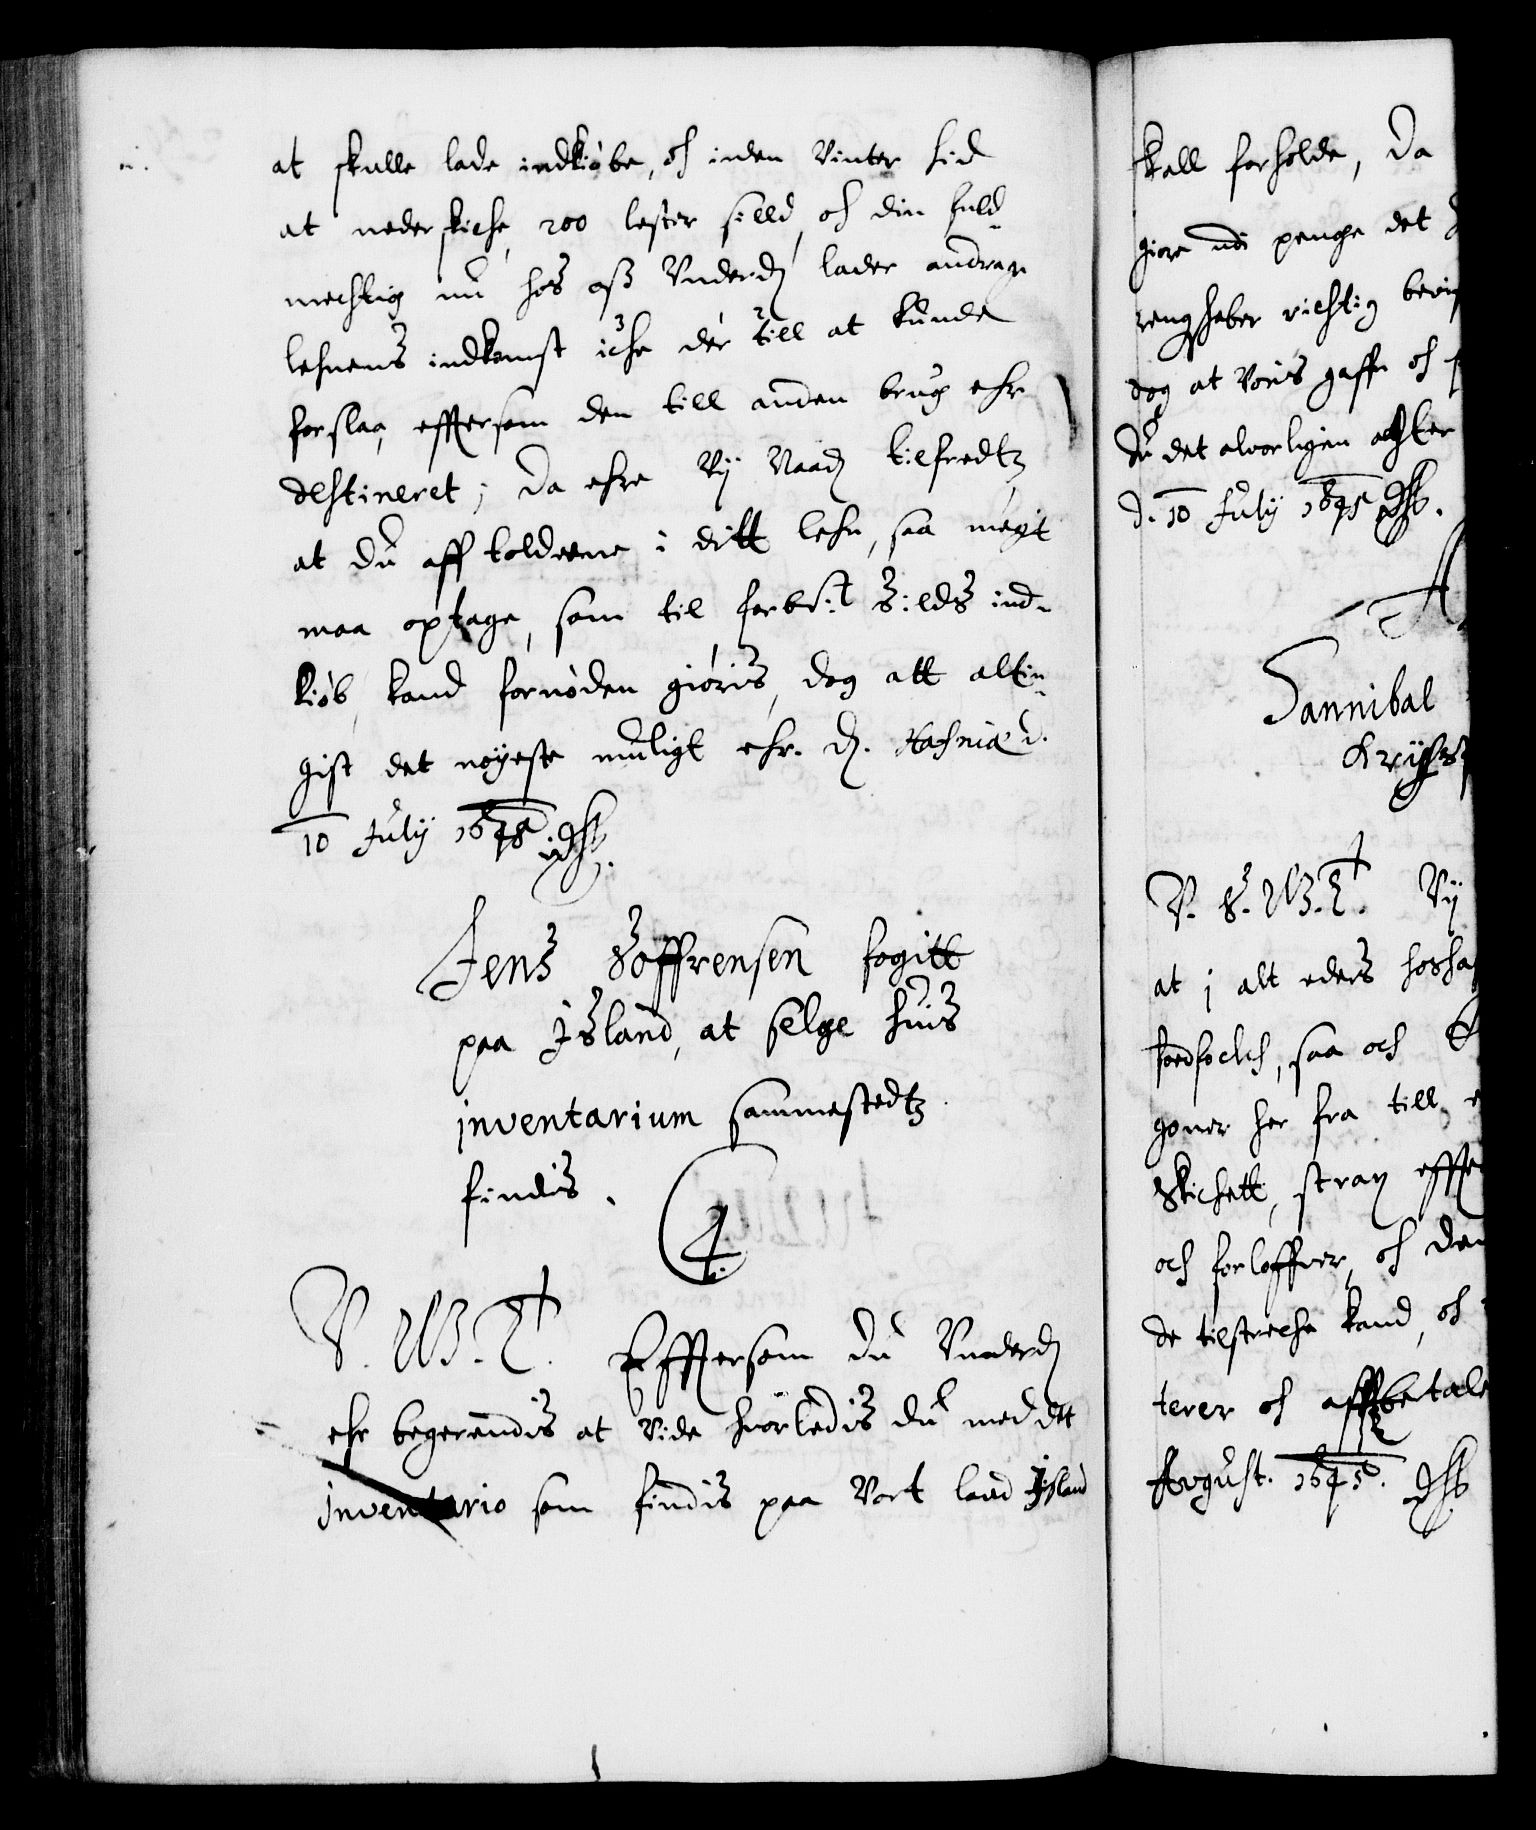 at skulle lade indkiøbe, oc inden Vinter hid
at nederskiche, 200 lester silld, oc din fuld-
mechtig nu hos oß Vnderd: lader andrage
lehnens indkomst iche der till at kunde
forslaa, effttersom den till anden brug ehr
destineret; Da ehre Vij Naad: tilfredtz
at du aff toldeene i ditt lehn, saa megit
maa optage, som til forbr:t Silds ind-
kiøb, kand fornøden giøris, dog att altin-
gist det nøyeste muligt ehr. D. Hafniæ d.
10 July 1645
Jens Søffrensen fogitt
paa Jsland, at selge huis
inventarium sammestedtz
findis.
C4
V. W. G.t Effttersom du Vnderd:
ehr begerendis at Vide huorledis du med dt
inventario som findis paa Vort land Jsland
skall forholde, Da
giøre udi penge det
rengskaber richtig bevi
dog at Voris gaffn oc
du det alvorligen achter
d. 10 July 1645
Hannibal
V. S. W. G.t Vij
at i alt eders hosha
fordfocht, saa och
goner her fra till
skichett, strax effte
och forløffver, oc den
de tilstreche kand, oc
terer oc affbetale
August. 1645.